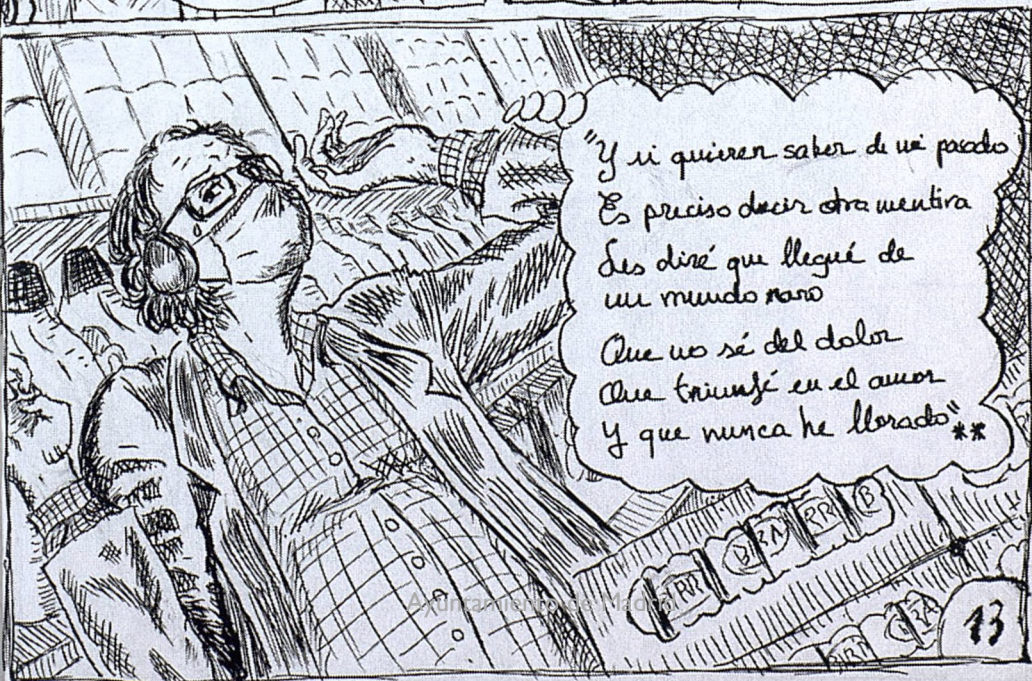 "Y si quieren saber de mi pasado
Es preciso decir otra mentira
Les diré que llegué de
un mundo raro
Que no sé del dolor
Que triunfé en el amor
Y que nunca he llorado"**
13
Ayuntamiento de Madrid